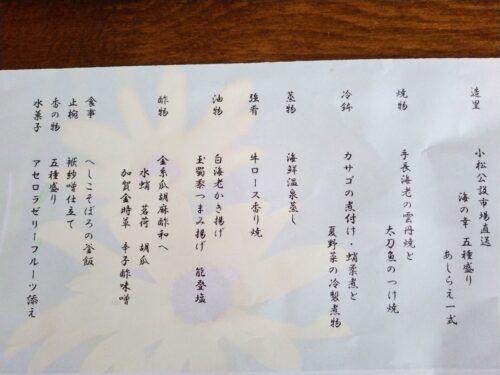 造里
小松公設市場直送
海の幸 五種盛り
あしらえ一式
焼物
手長海老の雲丹焼と
太刀魚のつけ焼
冷鉢
カサゴの煮付け・蛸柔煮と
夏野菜の冷製煮物
蒸物
海鮮温泉蒸し
強肴
牛ロース香り焼
油物
白海老かき揚げ
玉蜀黍つまみ揚げ 能登塩
酢物
金糸瓜胡麻酢和へ
水蛸 茗荷 胡瓜
加賀金時草 辛子酢味噌
食事
へしこそぼろの釜飯
止椀
袱紗噌仕立て
香の物
五種盛り
水菓子
アセロラゼリーフルーツ添え